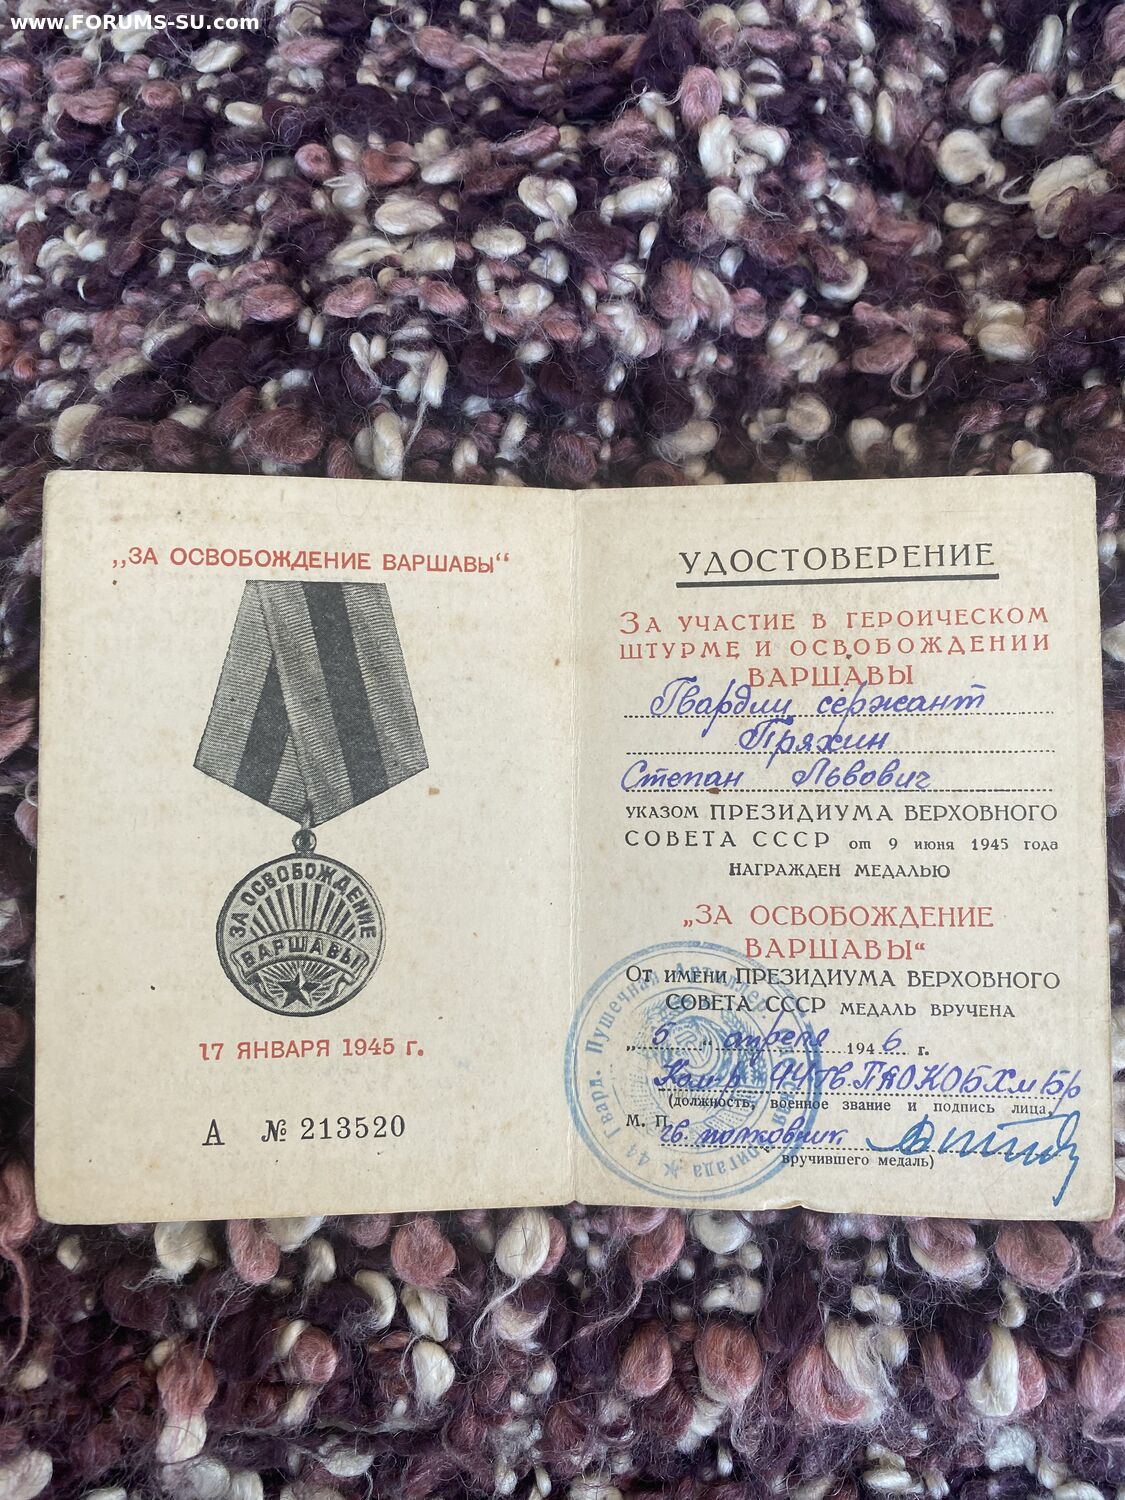 www.FORUMS-SU.com
„ЗА ОСВОБОЖДЕНИЕ ВАРШАВЫ“
ЗА ОСВОБОЖДЕНИЕ
ВАРШАВЫ
17 ЯНВАРЯ 1945 г.
А № 213520
УДОСТОВЕРЕНИЕ
ЗА УЧАСТИЕ В ГЕРОИЧЕСКОМ
ШТУРМЕ И ОСВОБОЖДЕНИИ
ВАРШАВЫ
Гвардии сержант
Пряхин
Степан Львович
УКАЗОМ ПРЕЗИДИУМА ВЕРХОВНОГО
СОВЕТА СССР от 9 июня 1945 года
НАГРАЖДЕН МЕДАЛЬЮ
„ЗА ОСВОБОЖДЕНИЕ
ВАРШАВЫ“
ОТ ИМЕНИ ПРЕЗИДИУМА ВЕРХОВНОГО
СОВЕТА СССР МЕДАЛЬ ВРУЧЕНА
„5“ апреля 1946 г.
Ком-р 44 гв. ПАОКОБХмБр
(должность, военное звание и подпись лица,
М. П.
гв. полковник
вручившего медаль)
44 Гвард. Пушечная